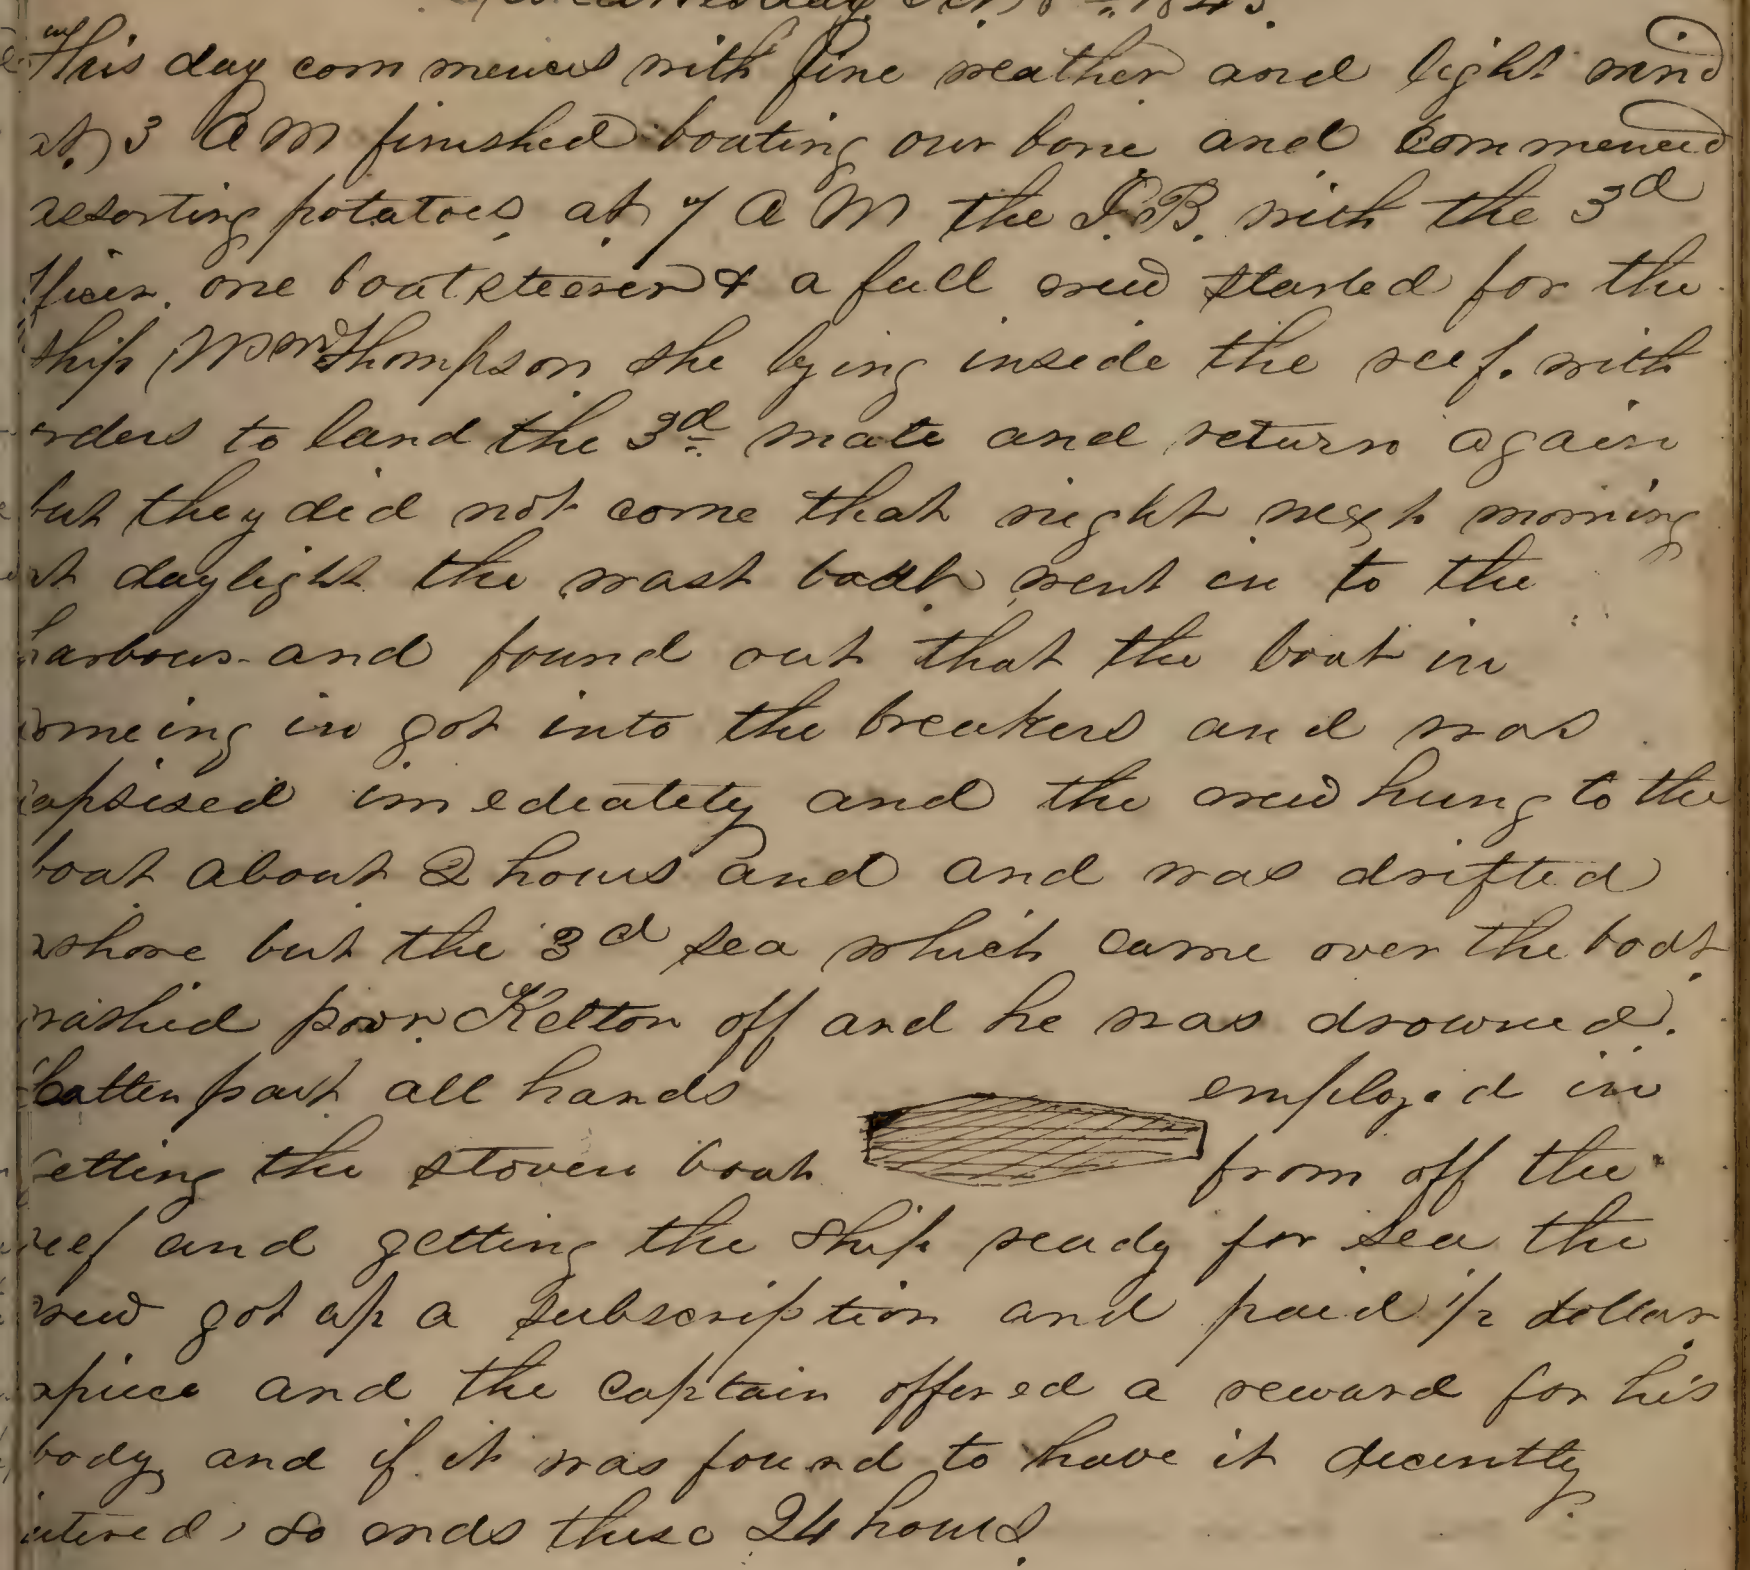 Wednesday Oct. 8th. 1845.
This day commences with fine weather and light wind
at 3 A M finished boating our bone and commenced
resorting potatoes, at 7 A M the L.B. with the 3d
fficer. one boatsteerer & a full crew started for the
ship Wm Thompson she lying inside the reef. with
orders to land the 3d mate and return again
but they did not come that night next morning
at daylight the wast boat went in to the
harbour and found out that the boat in
comeing in got into the breakers and was
capsised imediately and the crew hung to the
boat about 2 hours and and was drifted
ashore but the 3d sea which came over the boat
washed poor Kelton off and he was drowned.
Latter part all hands employed in
getting the stoven boat from off the
reef and getting the ship ready for sea the
crew got up a subscription and paid 1/2 dollar
apiece and the captain offered a reward for his
body, and if it was found to have it decently
intered, so ends these 24 hours.